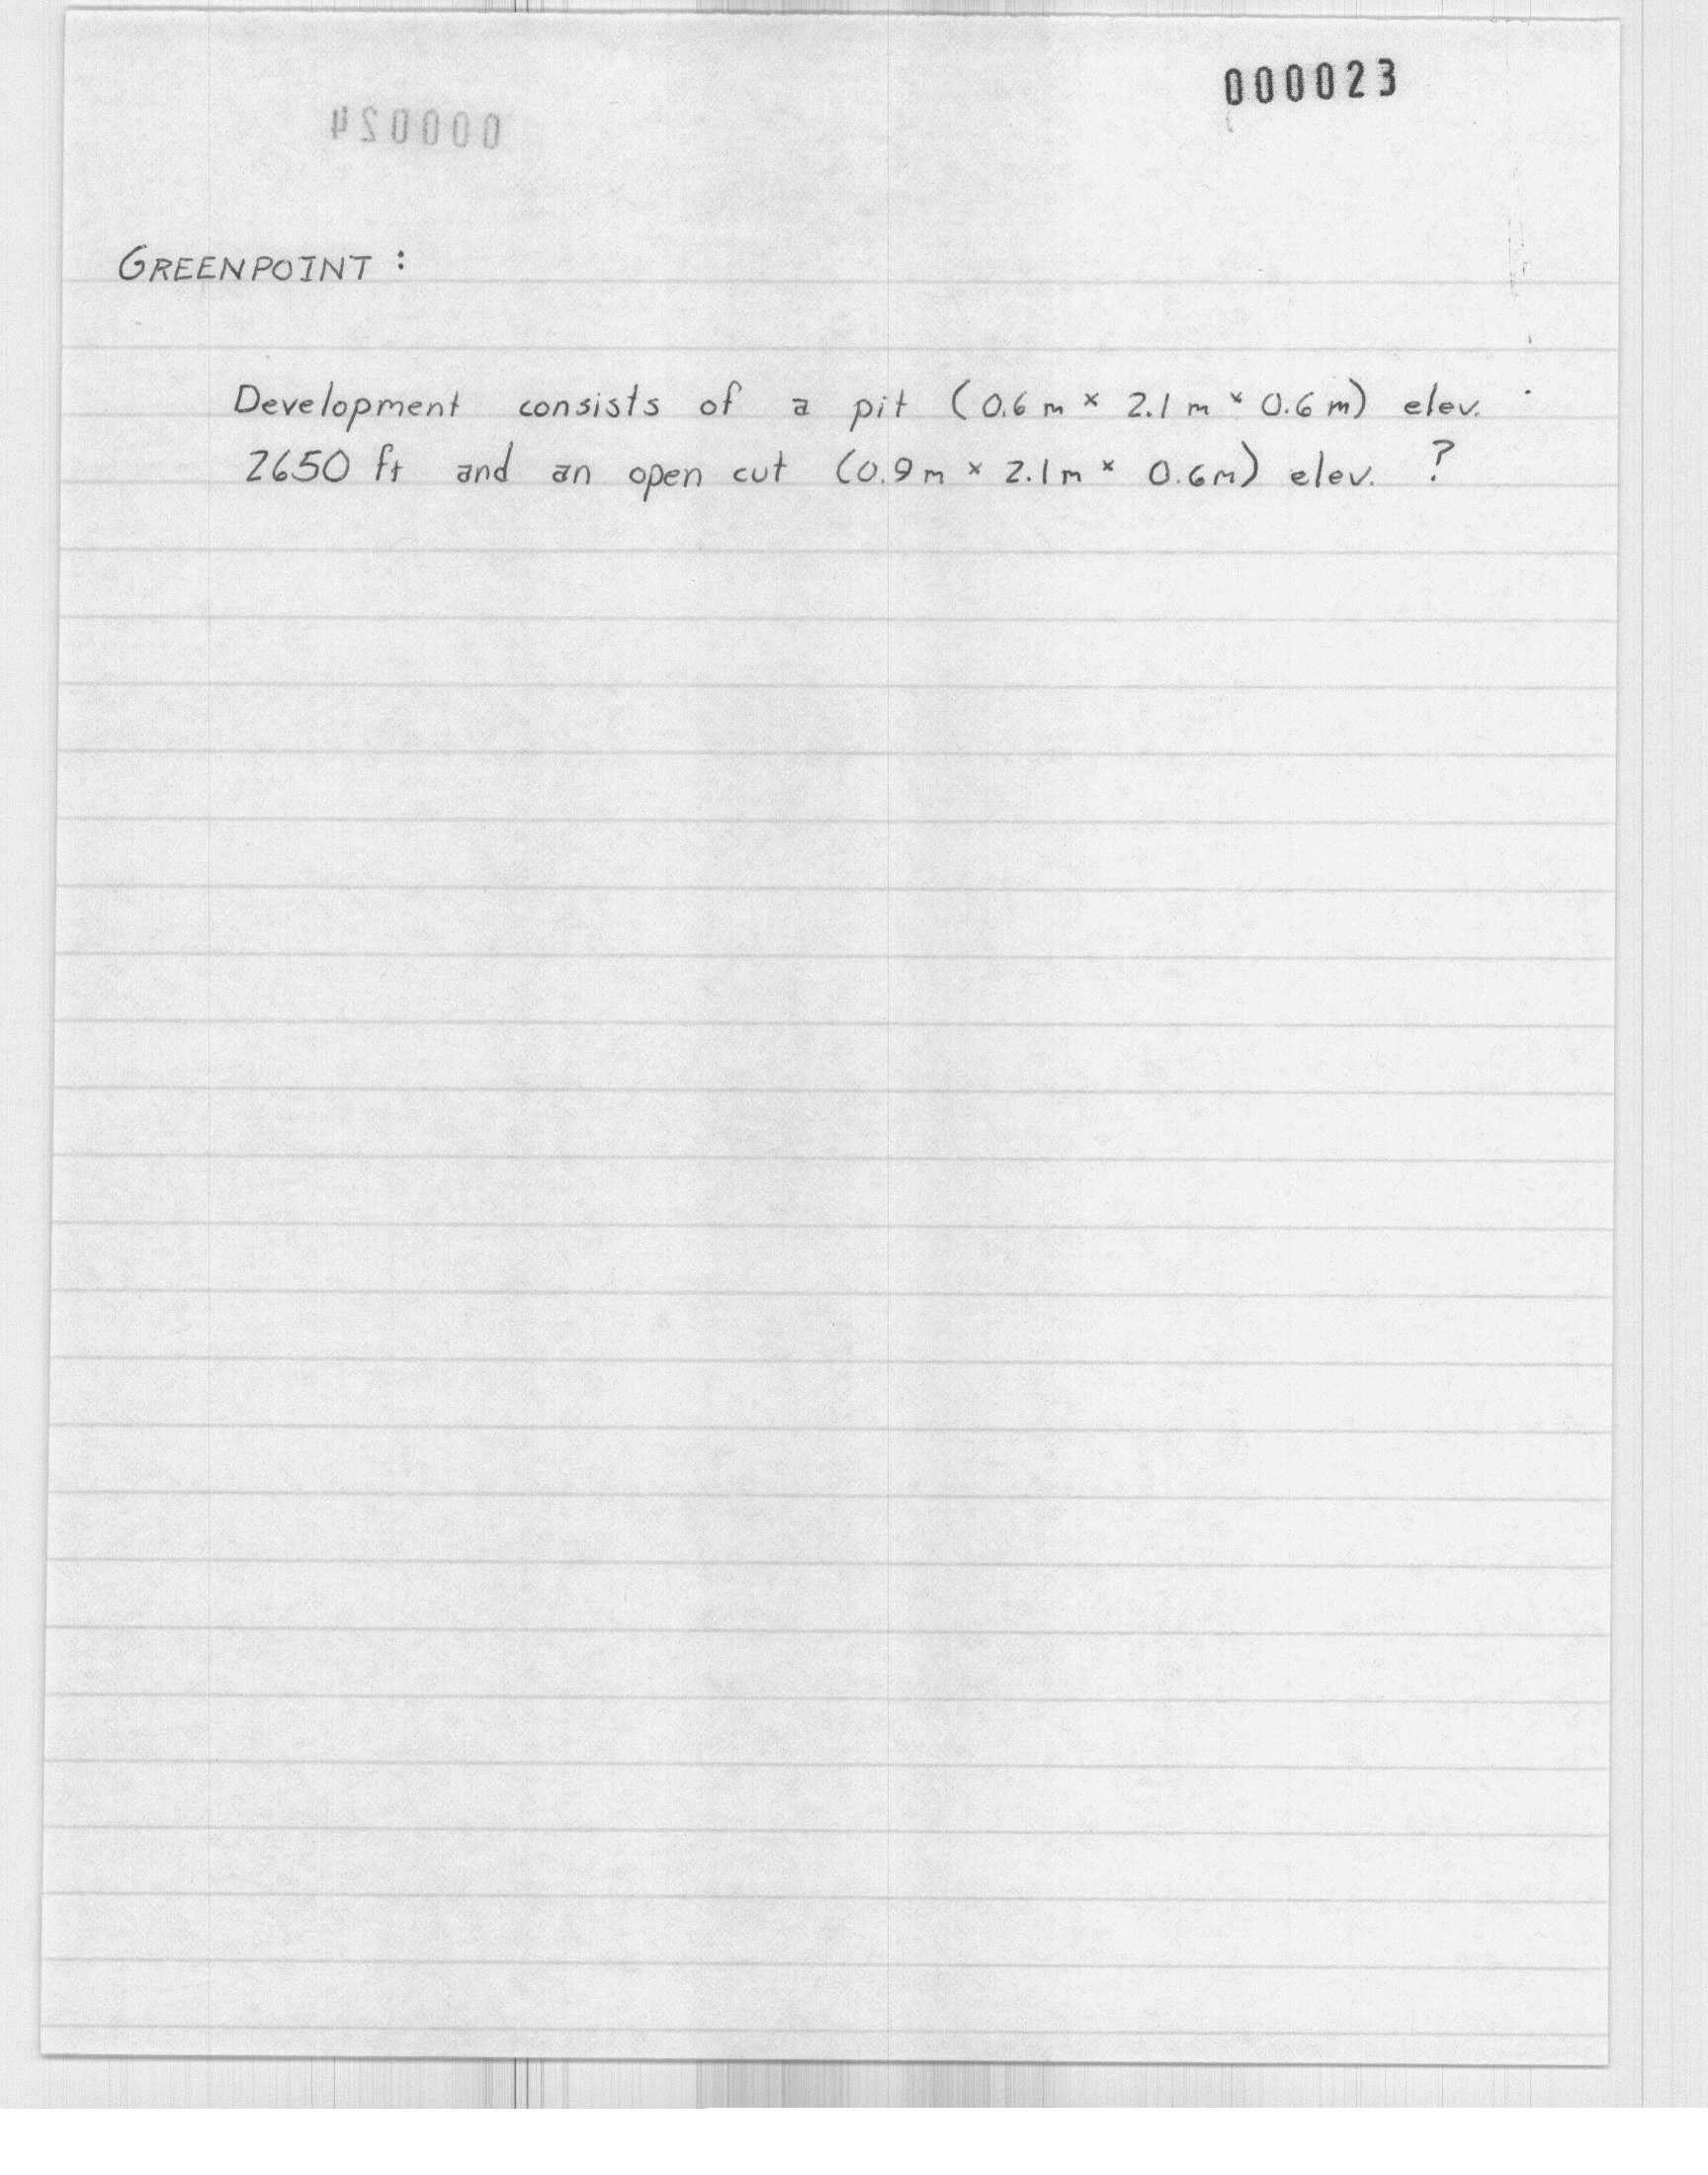 000023
000024
GREENPOINT :
Development consists of a pit (0.6 m x 2.1 m x 0.6 m) elev.
2650 ft and an open cut (0.9 m x 2.1 m x 0.6 m) elev. ?